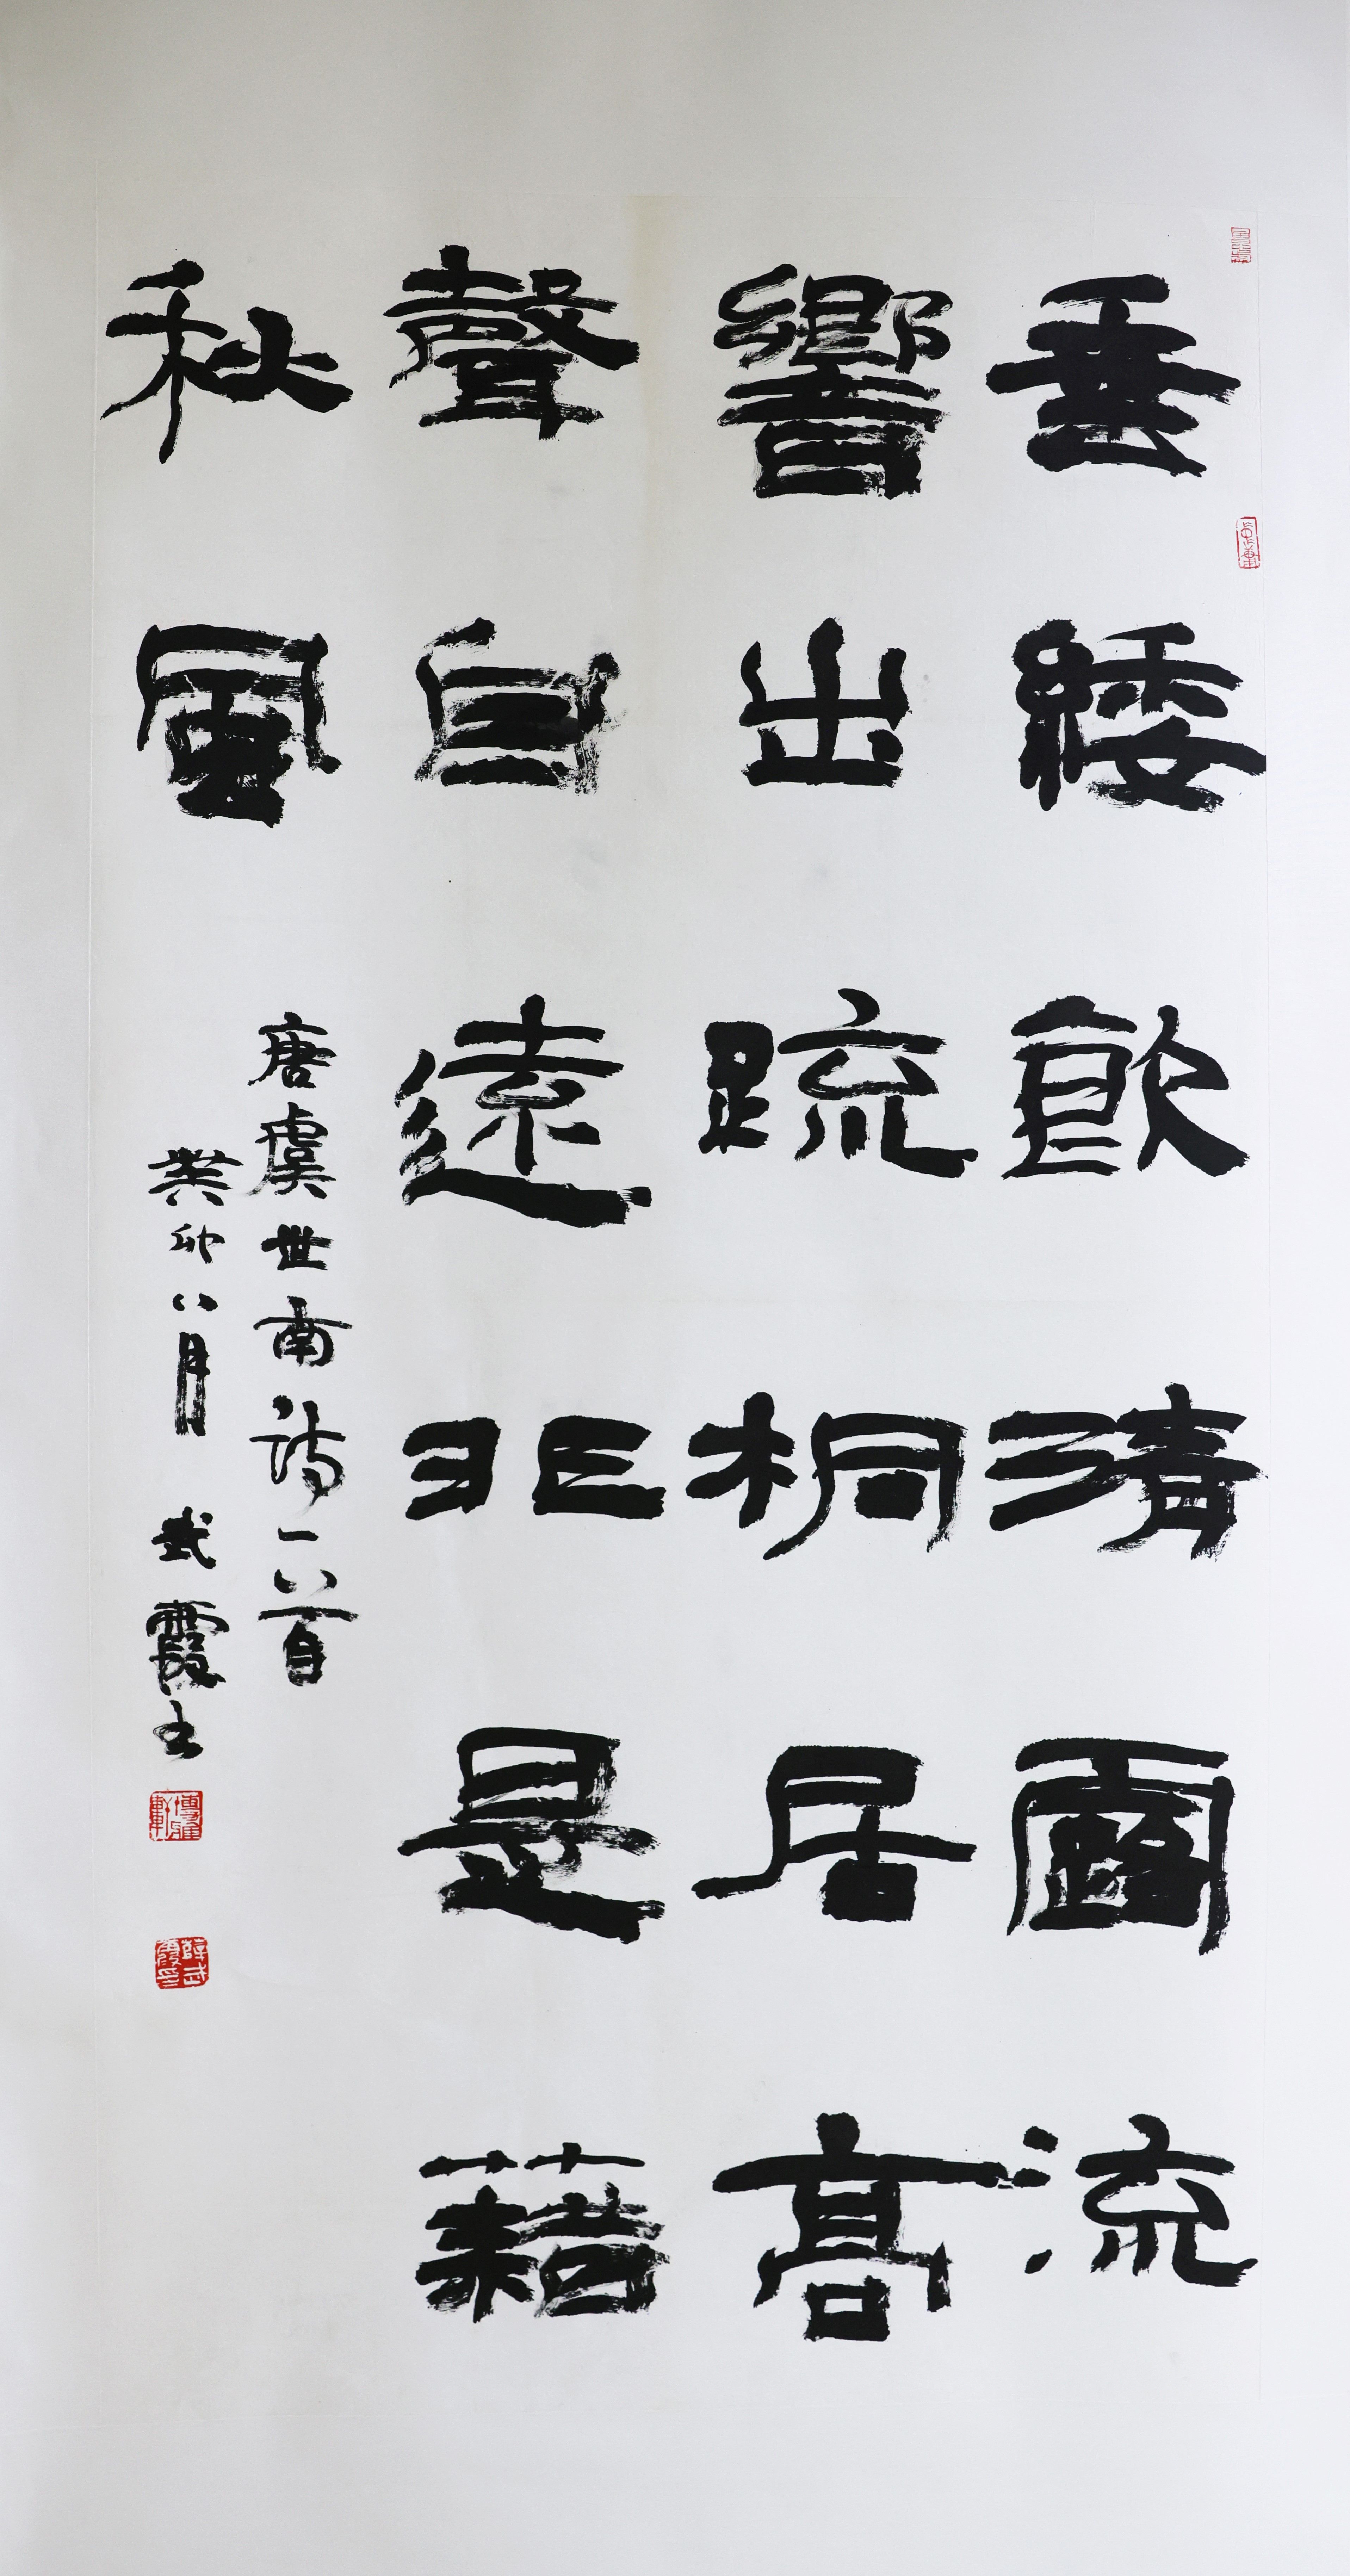 垂緌飲清露流
響出疏桐居高
聲自遠非是藉
秋風
唐虞世南詩一首
癸卯八月 武霞书
薛武霞印